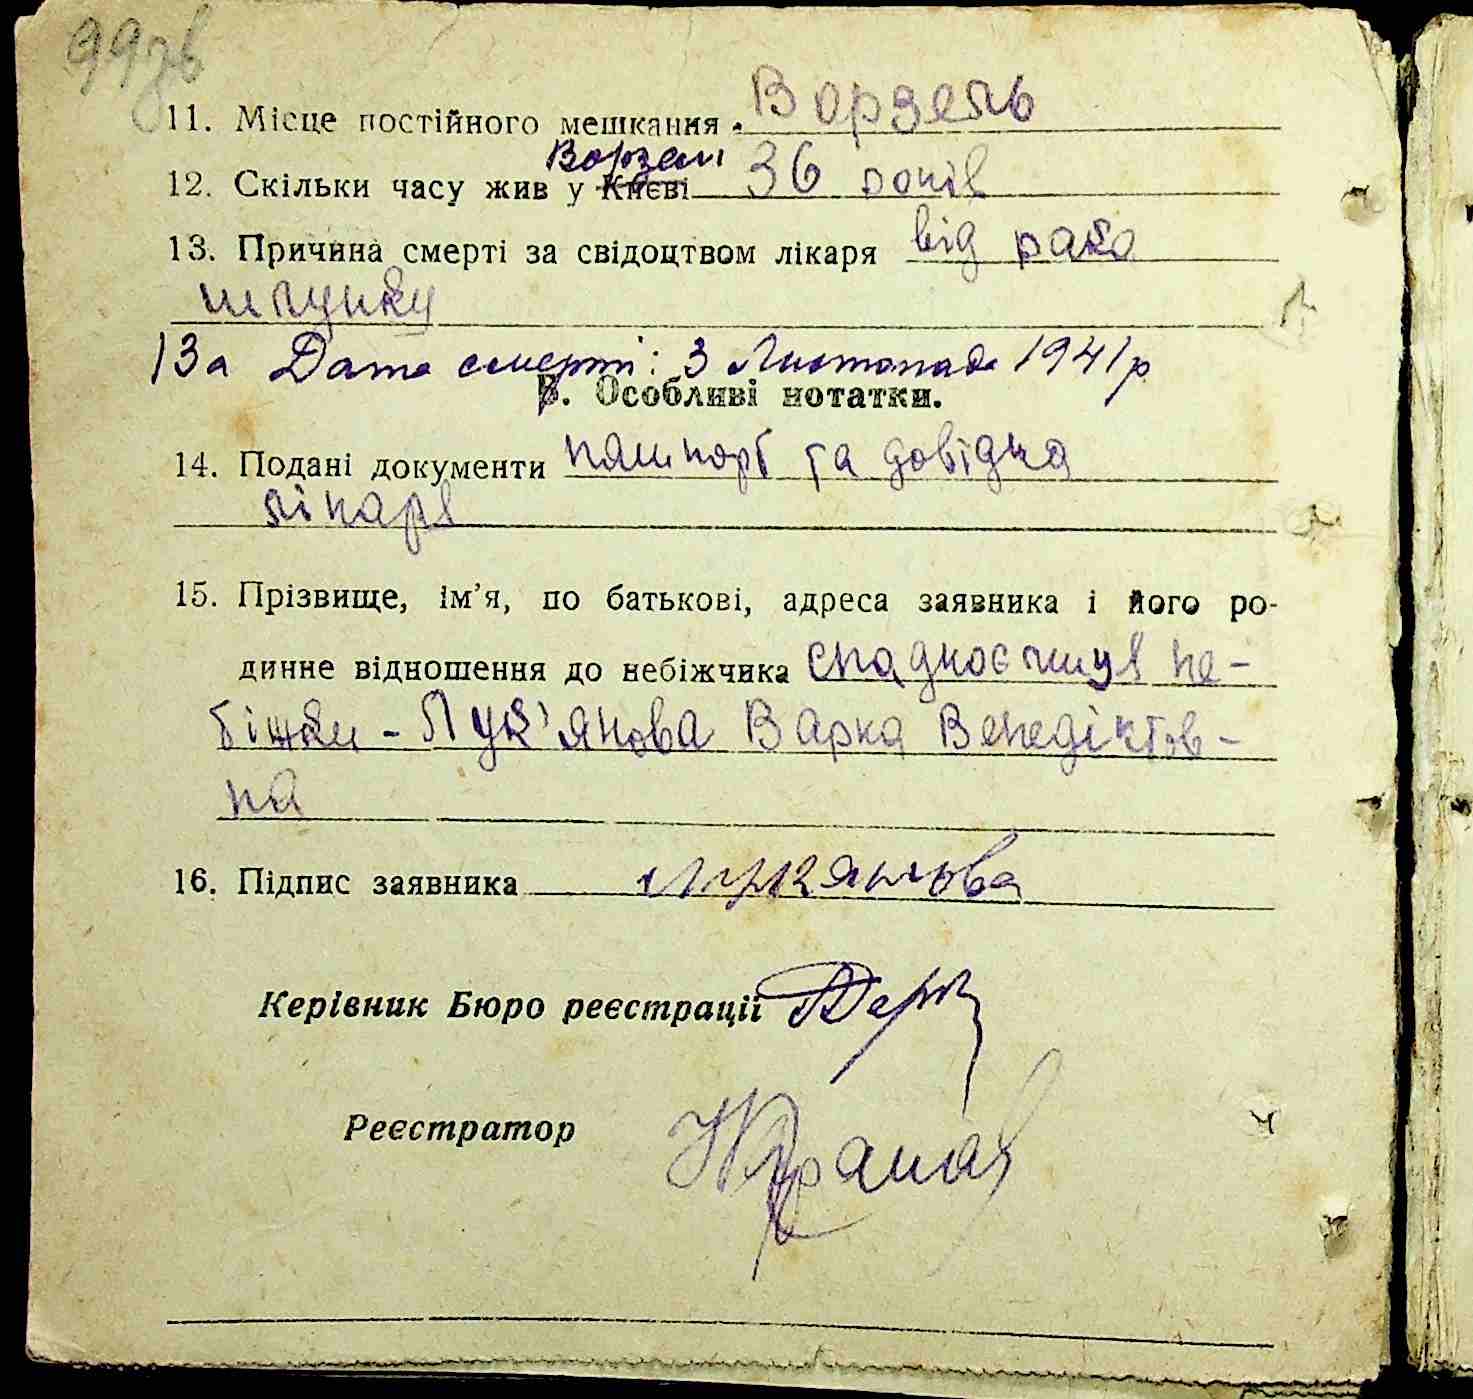 99зв
11. Місце постійного мешкання Ворзель
Ворзелі
12. Скільки часу жив у Києві 36 років
13. Причина смерті за свідоцтвом лікаря від рака
шлунку
13а Дата смерті: 3 Листопада 1941 р
В. Особливі нотатки.
14. Подані документи пашпорт та довідка
лікаря
15. Прізвище, ім’я, по батькові, адреса заявника і його ро-
динне відношення до небіжчика спадкоємиця не-
біжки - Лук'янова Варка Венедіктов-
на
16. Підпис заявника Лукянова
Керівник Бюро реєстрації
Реєстратор